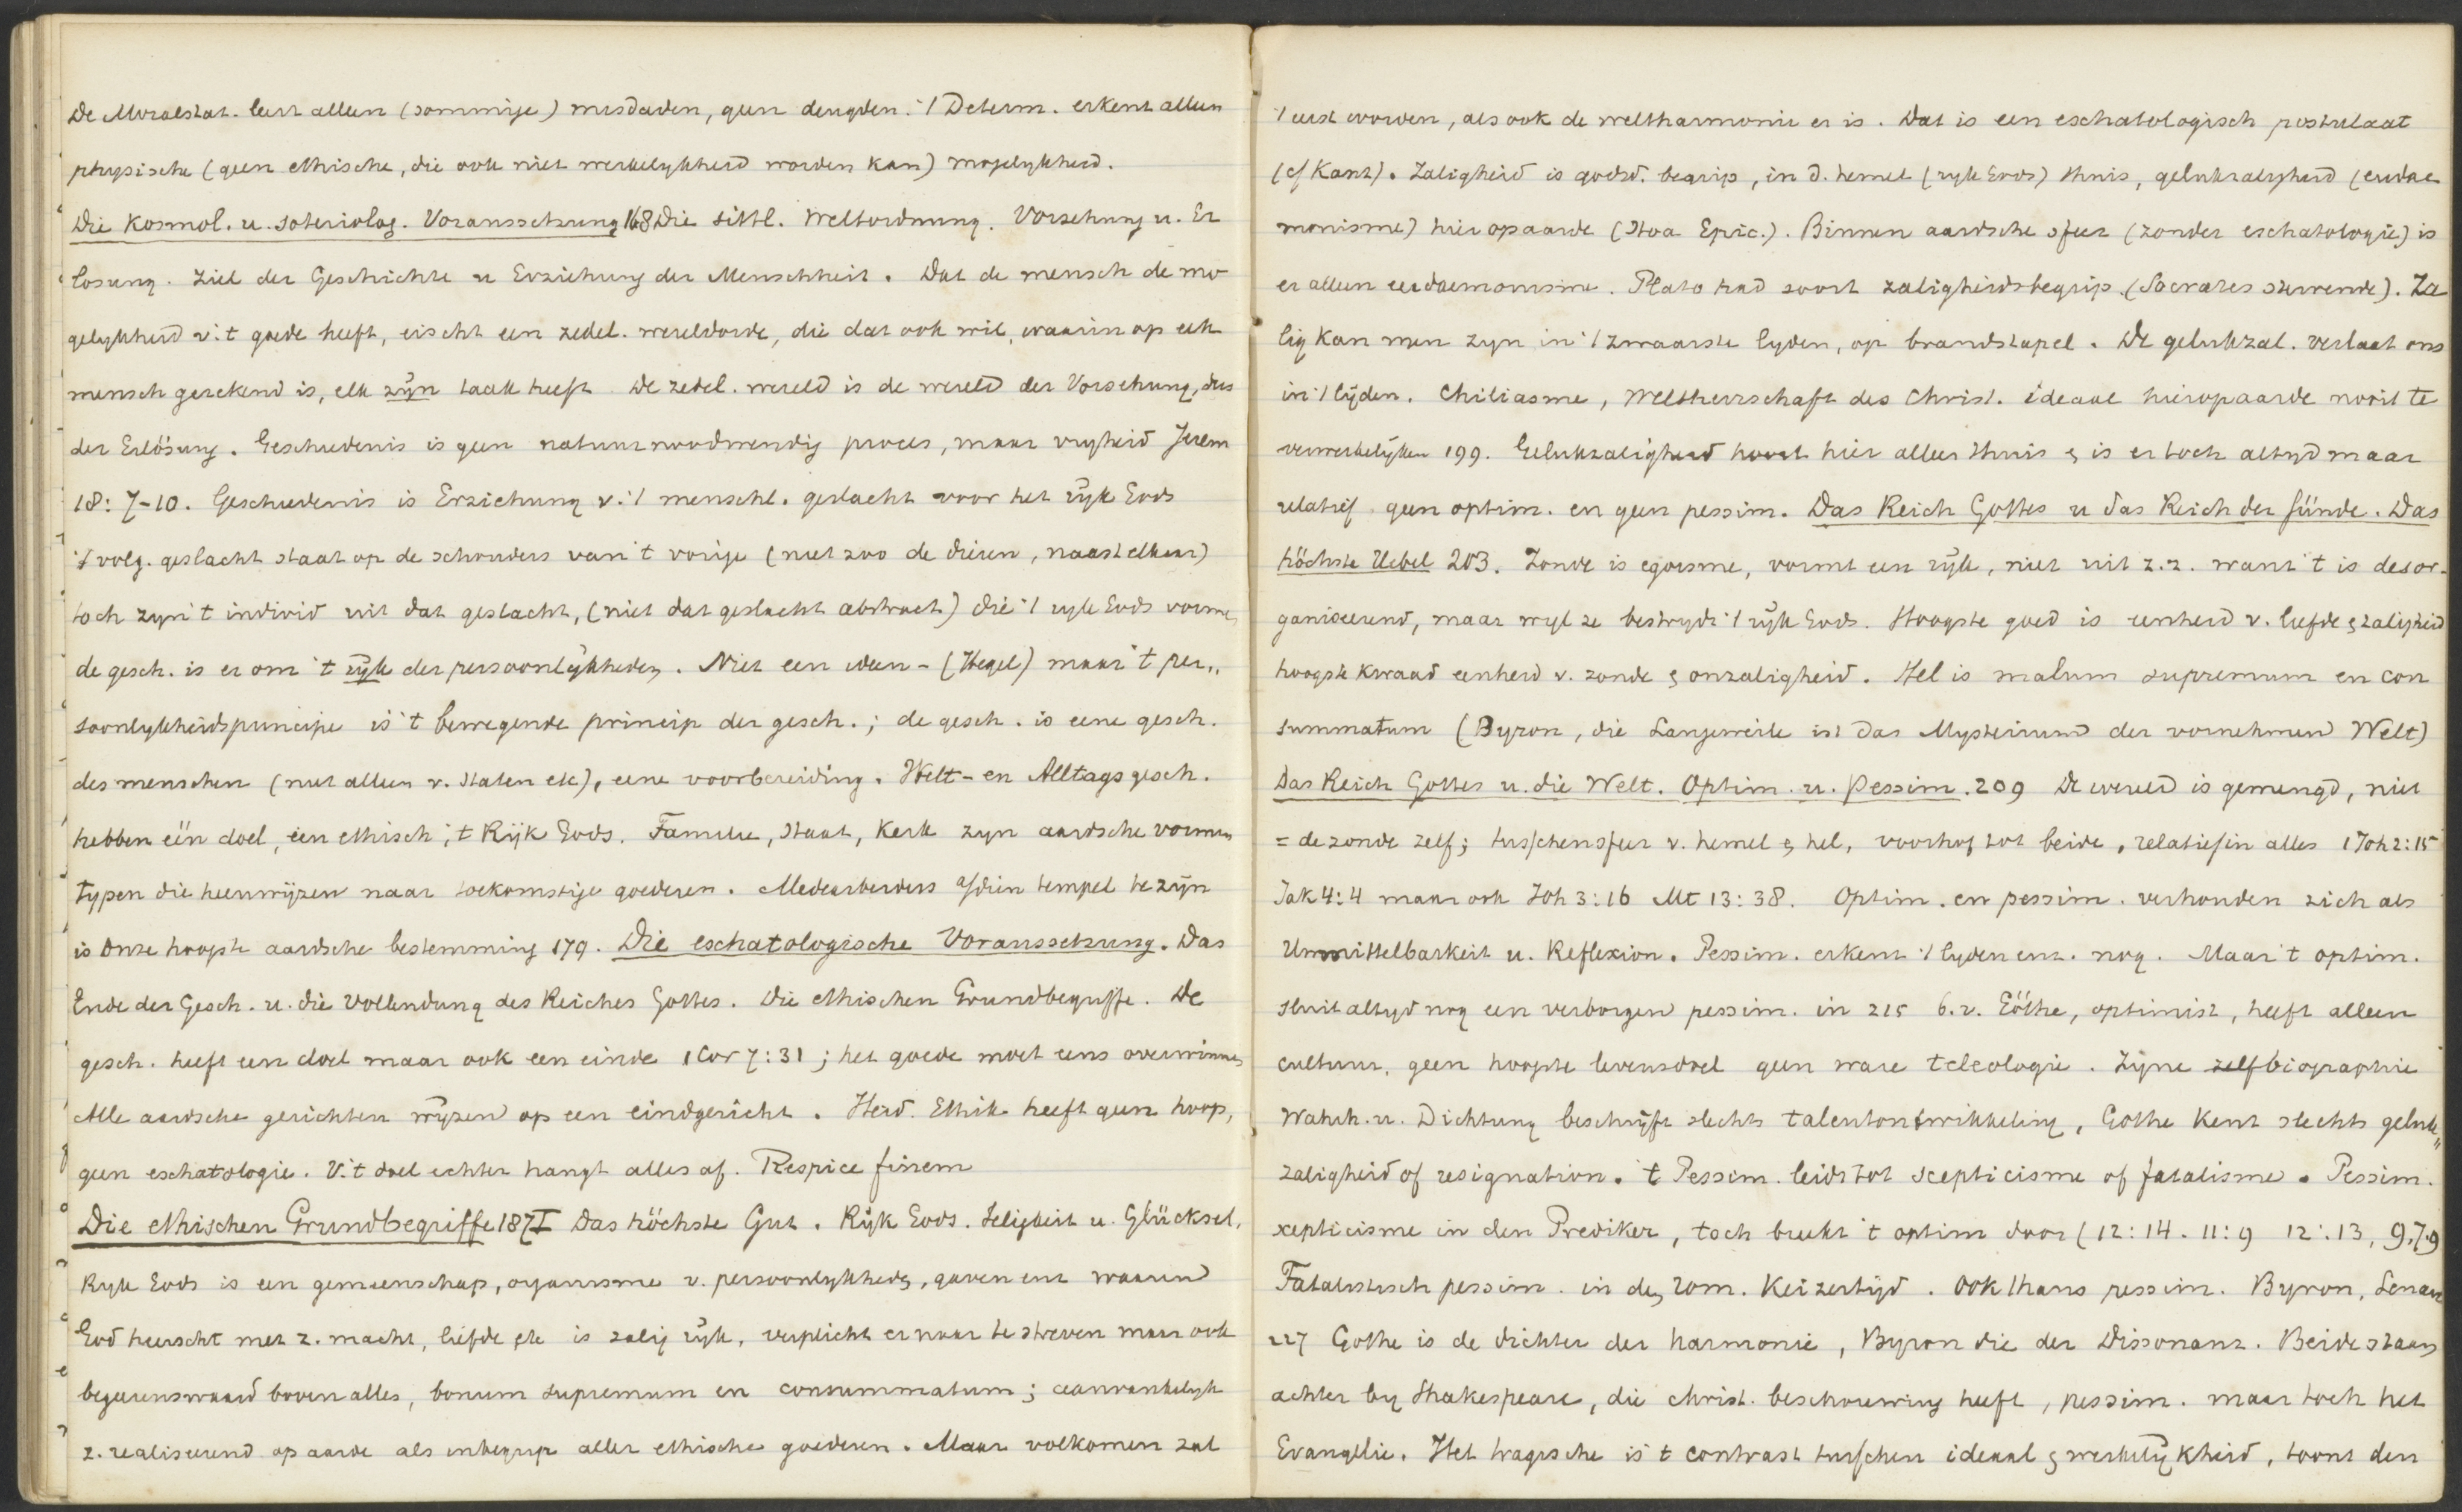 De Moralstat. leert alleen (sommige) misdaden, geen deugden. 't Determ. erkent alleen
physische (geen ethische, die ook niet werkelykheid worden kan) mogelykheid.
Die Kosmol. u. soteriolog. Voraussetzung 168 Die sittl. Weltordnung. Vorsehung u. Er
losung. Ziel der Geschichte u Erziehung der Menschheit. Dat de mensch de mo
gelykheid v. 't goede heeft, eischt een zedel. wereldorde, die dat ook wil, waarin op elk
mensch gerekend is, elk zijn taak heeft. De zedel. wereld is de wereld der Vorsehung, dus
der Erlösung. Geschiedenis is geen natuurnoodwendig proces, maar vryheid Jerem
18: 7-10. Geschiedenis is Erziehung v. 't menschl. geslacht voor het rijk Gods
't volg. geslacht staat op de schouders van 't vorige (niet zoo de dieren, naast elkaar)
toch zyn 't individ uit dat geslacht, (niet dat geslacht abstract) die 't ryk Gods vormen
de gesch. is er om 't rijk der persoonlijkheden. Niet een ideen- (Hegel) maar 't per„
soonlykheidsprincipe is 't bewegende princip der gesch.; de gesch. is eene gesch.
des menschen (niet alleen v. staten etc), eene voorbereiding. Welt- en Alltagsgesch.
hebben één doel, een ethisch; 't Rijk Gods. Familie, Staat, Kerk zyn aardsche vormen
typen die heenwijzen naar toekomstige goederen. Medearbeiders a/dien tempel te zijn
is onze hoogste aardsche bestemming 179. Die eschatologische Voraussetzung. Das
Ende der Gesch. u. die Vollendung des Reiches Gottes. Die ethischen Grundbegriffe. De
gesch. heeft een doel maar ook een einde 1 Cor 7:31; het goede moet eens overwinnen
Alle aardsche gerichten wijzen op een eindgericht. Heid. Ethik heeft geen hoop,
geen eschatologie. V. 't doel echter hangt alles af. Respice finem
Die ethischen Grundbegriffe 187 I Das höchste Gut. Rijk Gods. Seligkeit u. Glücksel.
Ryk Gods is een gemeenschap, organisme v. persoonlykheden, gaven enz waarin
God heerscht met z. macht, liefde etc is zalig rijk, verplicht er naar te streven maar ook
begeerenswaard boven alles, bonum supremum en consummatum; aanvankelyk
z. realiseerend op aarde als inbegrip aller ethische goederen. Maar volkomen zal
't eerst worden, als ook de weltharmonie er is. Dat is een eschatologisch postulaat
(cf Kant). Zaligheid is godsd. begrip, in d. hemel (ryk Gods) thuis, gelukzalygheid (eudae
monisme) hier op aarde (Stoa Epic.). Binnen aardsche sfeer (zonder eschatologie) is
er alleen eudaemonisme. Plato had soort zaligheidsbegrip (Socrates stervende). Za
lig kan men zyn in 't zwaarste lyden, op brandstapel. De gelukzal. verlaat ons
in 't lijden. Chiliasme, Weltherrschaft des Christ. ideaal hieropaarde nooit te
verwerkelijken 199. Gelukzaligheid hoort hier alleen thuis & is er toch altyd maar
relatief geen optim. en geen pessim. Das Reich Gottes u das Reich der Sünde. Das
höchste Uebel 203. Zonde is egoisme, vormt een rijk, niet uit z.z. want 't is desor-
ganiseerend, maar wyl ze bestrydt 't rijk Gods. Hoogste goed is eenheid v. liefde & zaligheid
hoogste kwaad eenheid v. zonde & onzaligheid. Hel is malum supremum en con
summatum (Byron, die Langeweile ist das Mysterium der vornehmen Welt)
Das Reich Gottes u. die Welt. Optim. u. Pessim. 209 De wereld is gemengd, niet
= de zonde zelf; tusschensfeer v. hemel & hel, voorhof tot beide, relatief in alles 1 Joh 2:15
Jak 4:4 maar ook Joh 3:16 Mt 13:38. Optim. en pessim. verhouden zich als
Unmittelbarkeit u. Reflexion. Pessim. erkent 't lyden enz. nog. Maar 't optim.
sluit altyd nog een verborgen pessim. in 215 b.v. Göthe, optimist, heeft alleen
cultuur, geen hoogste levensdoel geen ware teleologie. Zijne zelfbiographie
Wahrh. u. Dichtung beschrijft slechts talentontwikkeling, Göthe kent slechts geluk„
zaligheid of resignation. 't Pessim. leidt tot scepticisme of fatalisme. Pessim.
scepticisme in den Prediker, toch breekt 't optim door (12:14. 11:9 12:13, 9,7.9
Fatalistisch pessim. in den rom. Keizertijd. Ook thans pessim. Byron, Lenau
227 Göthe is de dichter der harmonie, Byron die der Dissonanz. Beide staan
achter by Shakespeare, die christ. beschouwing heeft, pessim. maar toch het
Evangelie. Het tragische is 't contrast tusschen ideaal & werkelijkheid, toont den